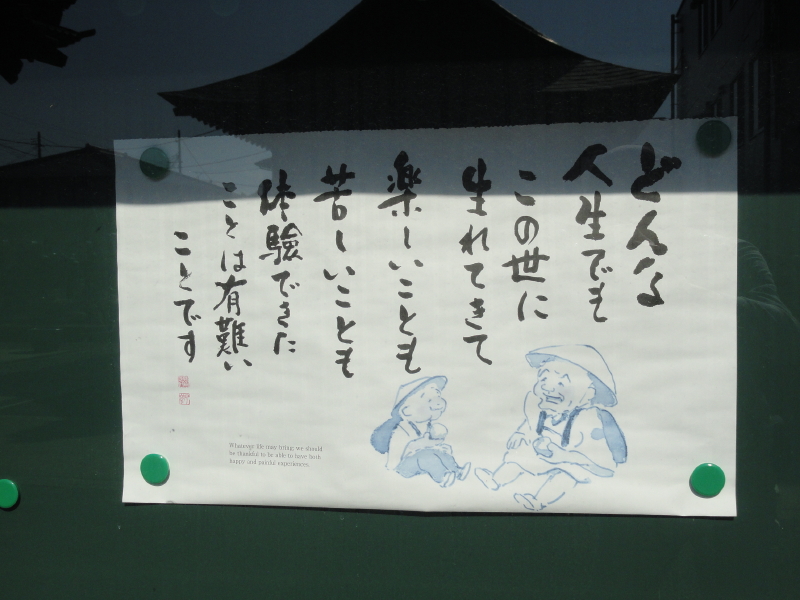 どんな
人生でも
この世に
生れてきて
楽しいことも
苦しいことも
体験できた
ことは有難い
ことです
Whatever life may bring, we should
be thankful to be able to have both
happy and painful experiences.